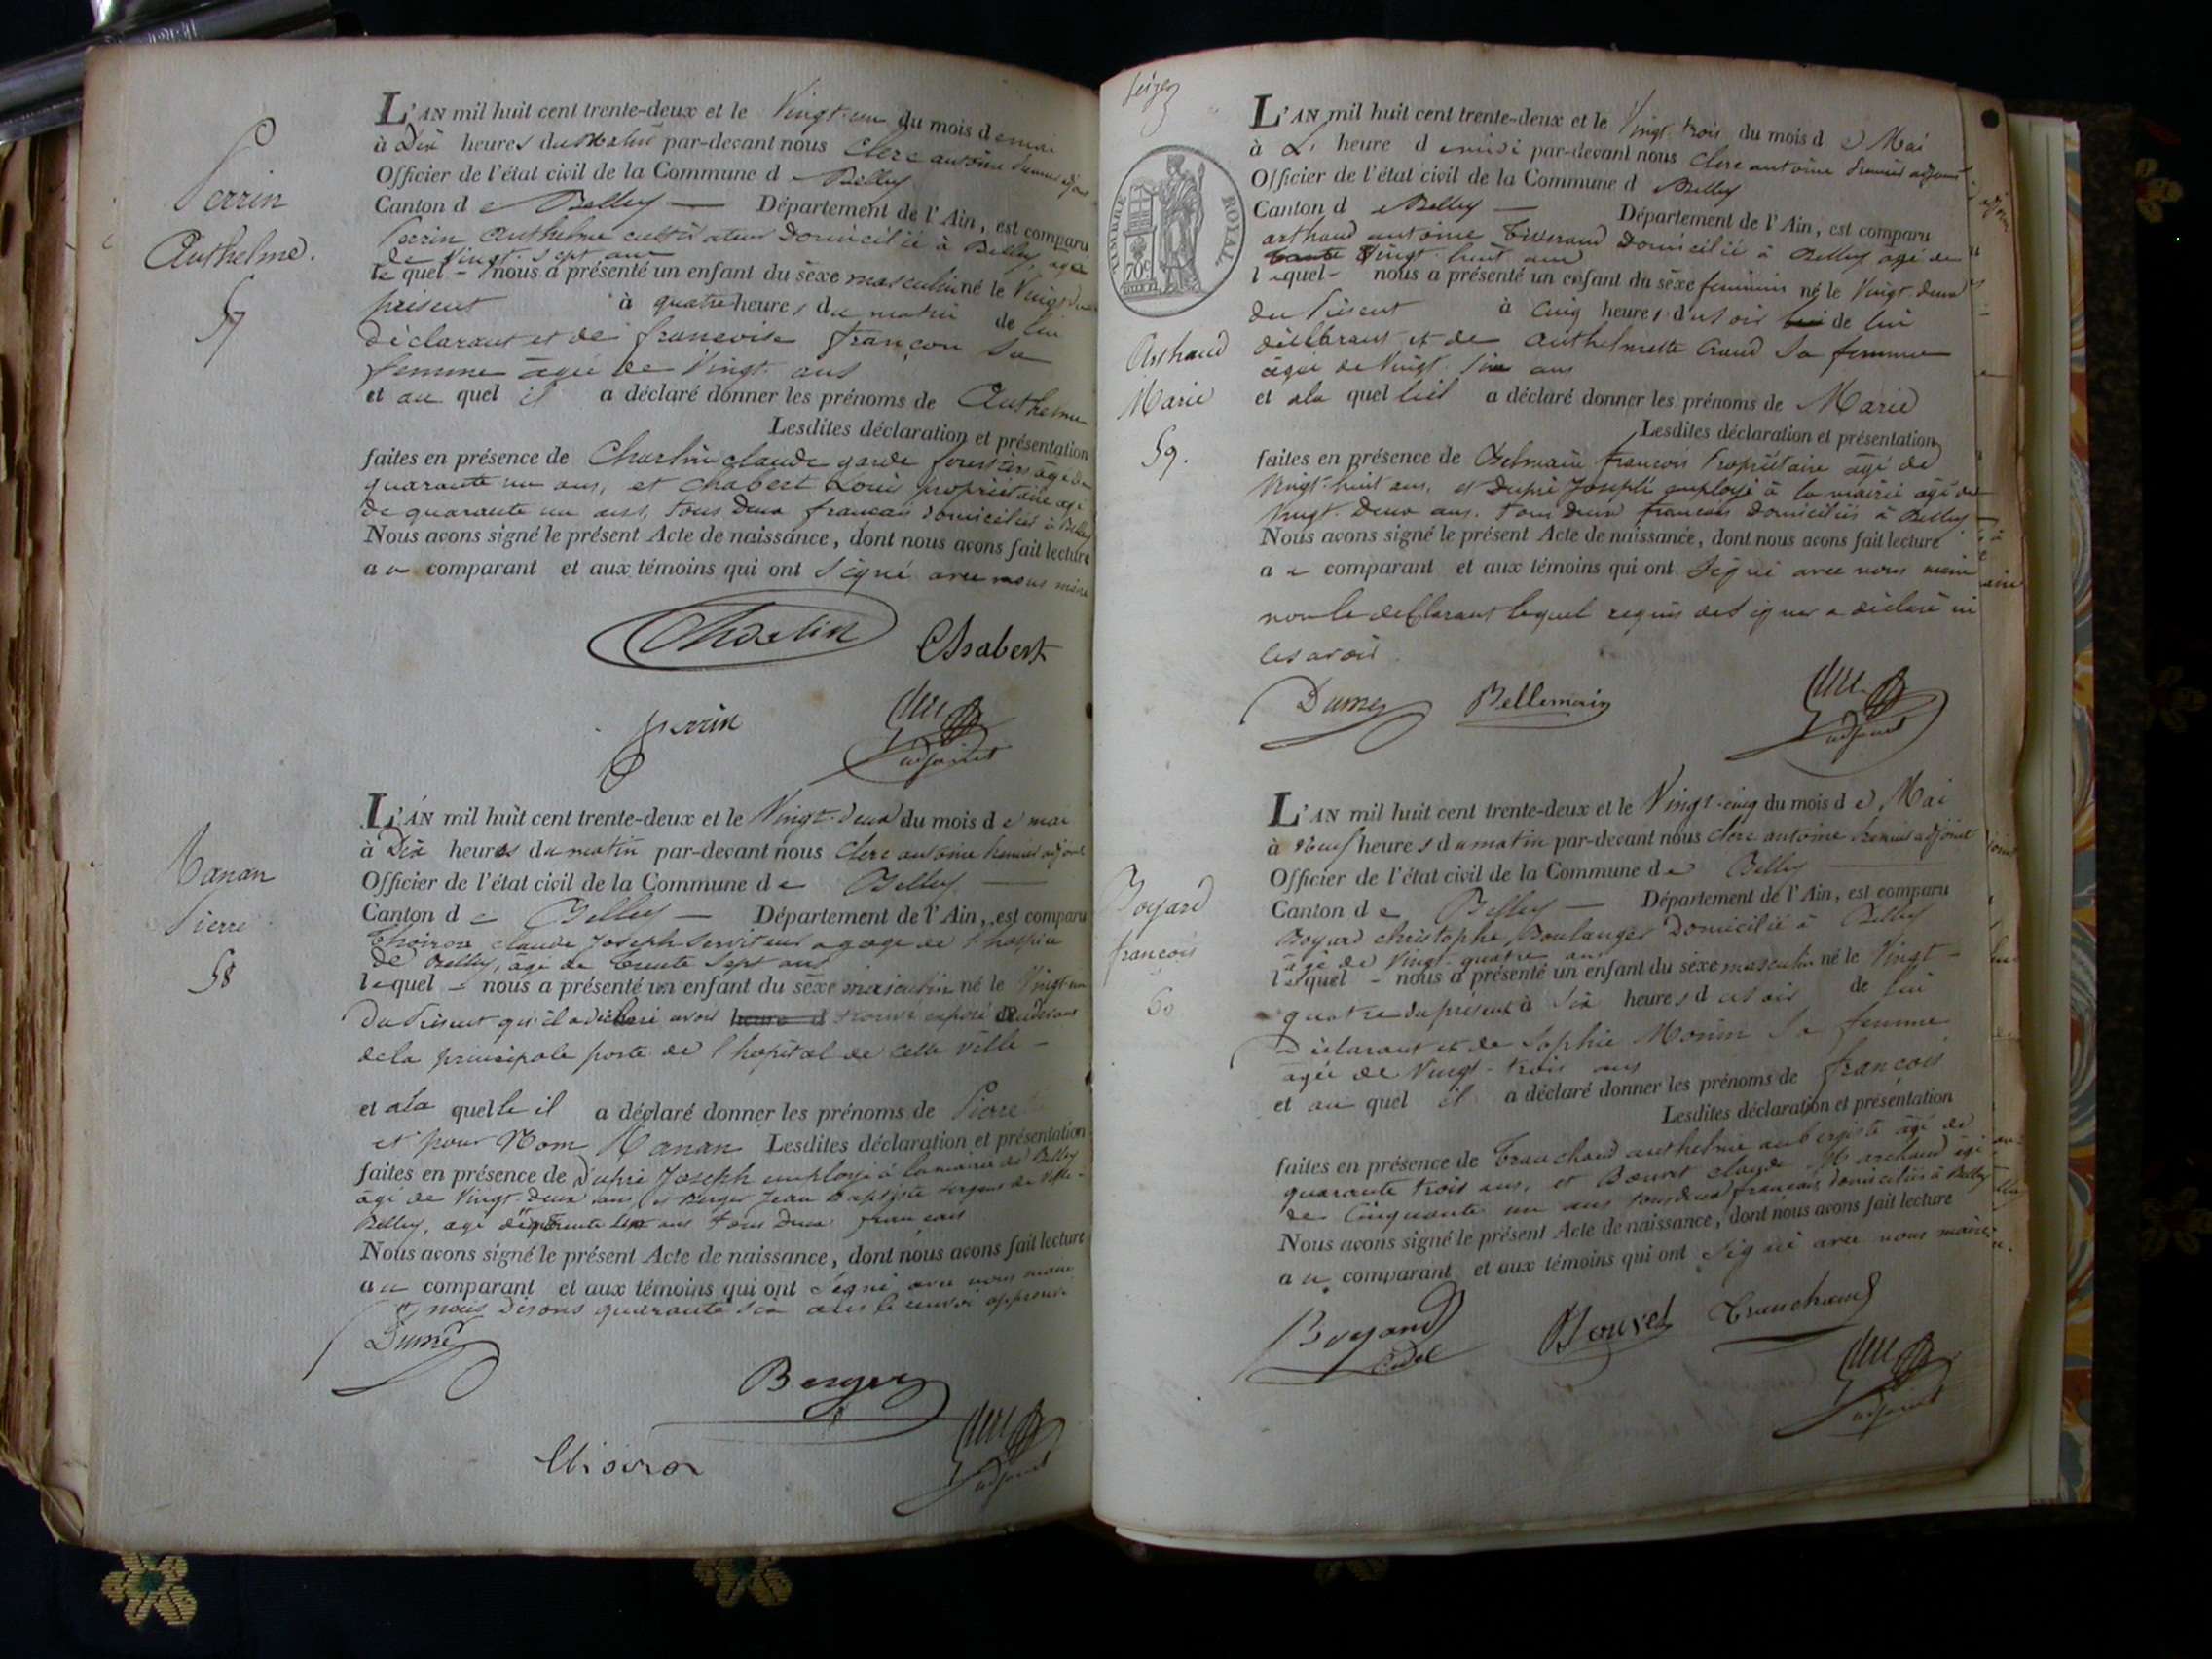 Perrin
Anthelme.
57
L'AN mil huit cent trente-deux et le Vingt-un du mois de mai
à Dix heures du Matin par-devant nous Clerc antoine premier adjoint
Officier de l'état civil de la Commune de Belley
Canton de Belley — Département de l'Ain, est comparu
Perrin Anthelme cultivateur domicilié à Belley, agé
de Vingt-sept ans
lequel - nous a présenté un enfant du sexe masculin né le Vingt
présent à quatre heures du matin de lui
déclarant et de francoise françon Sa
femme agée de Vingt ans
et au quel il a déclaré donner les prénoms de Anthelme
Lesdites déclaration et présentation
faites en présence de Charlin claude garde forestier agé de
quarante un ans, et Chabert Louis propriétaire agé
de quarante un ans, tous deux francais domiciliés à Belley
Nous avons signé le présent Acte de naissance, dont nous avons fait lecture
au comparant et aux témoins qui ont Signé avec nous
Charlin Chabert
perrin
adjoint
Nanan
Pierre
58
L'AN mil huit cent trente-deux et le Vingt-deux du mois de mai
à Dix heures du matin par-devant nous Clerc antoine premier adjoint
Officier de l'état civil de la Commune de Belley
Canton de Belley — Département de l'Ain, est comparu
Thoiron claude Joseph Serviteur a gage de l'hospice
de Belley, agé de trente sept ans
lequel - nous a présenté un enfant du sexe masculin né le Vingt-un
du Présent qu'il a déclaré avoir trouvé exposé au devant
de la principale porte de l'hopital de cette ville -
et a la quelle il a déclaré donner les prénoms de Pierre
et pour Nom Nanan Lesdites déclaration et présentation
faites en présence de Dupré Joseph employé à la mairie de Belley
agé de Vingt-deux ans et Berger Jean Baptiste sergent de Ville -
Belley, agé de trente six ans tous deux francais
Nous avons signé le présent Acte de naissance, dont nous avons fait lecture
au comparant et aux témoins qui ont Signé avec nous
nous disons quarante six ans le renvoi approuvé
Berger
Thoiron
adjoint
TIMBRE ROYAL
70c
Arthaud
Marie
59.
L'AN mil huit cent trente-deux et le Vingt trois du mois de Mai
à heure de midi par-devant nous Clerc antoine Premier adjoint
Officier de l'état civil de la Commune d Belley
Canton de Belley — Département de l'Ain, est comparu
arthaud antoine Tisserand Domicilié à Belley agé de
Vingt-huit ans
lequel - nous a présenté un enfant du sexe feminin né le Vingt-deux
du Présent à Cinq heures du soir de lui
déclarant et de Anthelmette Craud Sa femme
agée de Vingt ans
et a la quelle il a déclaré donner les prénoms de Marie
Lesdites déclaration et présentation
faites en présence de Belmain françois Propriétaire agé de
Vingt-huit ans, et Dupré Joseph employé à la mairie agé de
Vingt-Deux ans. tous deux francais Domiciliés à Belley
Nous avons signé le présent Acte de naissance, dont nous avons fait lecture
au comparant et aux témoins qui ont Signé avec nous
non le déclarant lequel requis de Signer a déclaré ne
le savoir.
Bellemain
adjoint
Boyard
francois
60
L'AN mil huit cent trente-deux et le Vingt-cinq du mois de Mai
à Neuf heures du matin par-devant nous Clerc antoine Premier adjoint
Officier de l'état civil de la Commune de Belley
Canton de Belley — Département de l'Ain, est comparu
Boyard christophe Boulanger Domicilié à Belley
agé de Vingt-quatre ans
lequel - nous a présenté un enfant du sexe masculin né le Vingt-
quatre du présent à Six heures du soir de lui
Déclarant et de Sophie Monin Sa femme
agée de Vingt-trois ans
et au quel il a déclaré donner les prénoms de françois
Lesdites déclaration et présentation
faites en présence de Tranchand anthelme aubergiste agé de
quarante trois ans, et Bouvet claude Marchand agé
de Cinquante un ans tous deux francais domiciliés à Belley
Nous avons signé le présent Acte de naissance, dont nous avons fait lecture
au comparant et aux témoins qui ont Signé avec nous
Boyard Bouvet Tranchand
adjoint